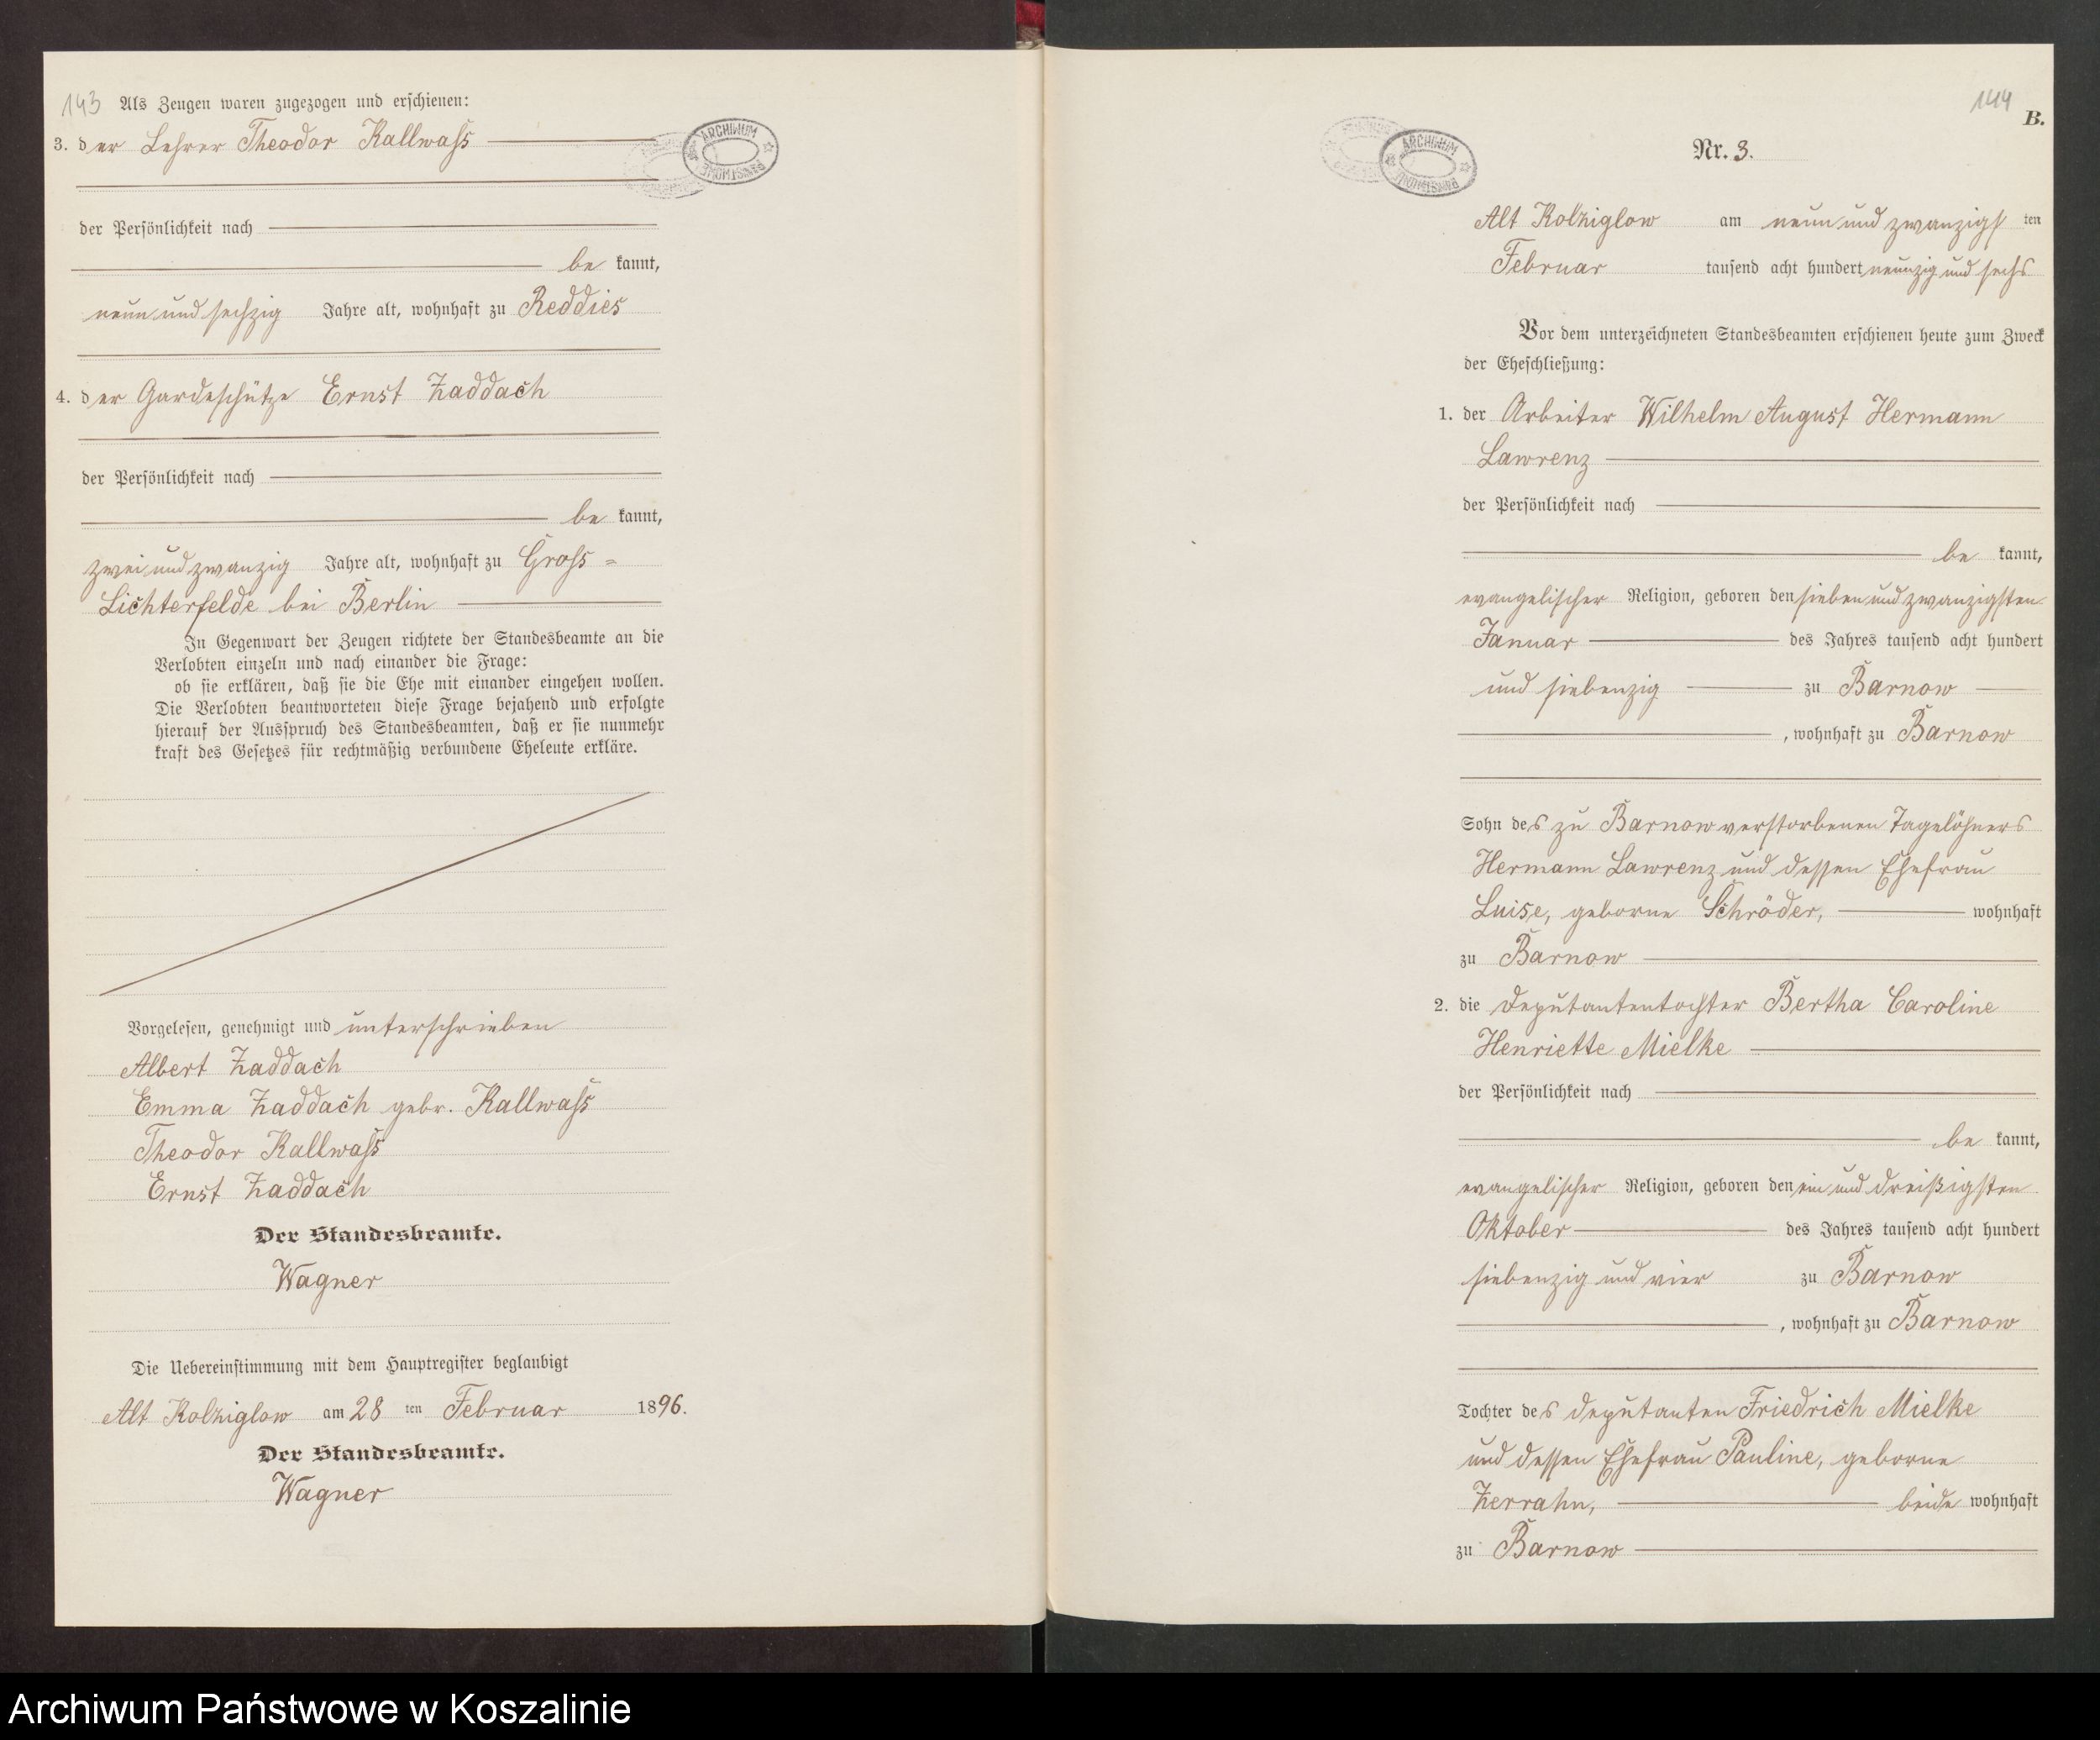 143 Als Zeugen waren zugezogen und erschienen:
3. der Lehrer Theodor Kallwaß
der Persönlichkeit nach
be kannt,
neun und sechzig Jahre alt, wohnhaft zu Reddies
4. der Gardeschütze Ernst Zaddach
der Persönlichkeit nach
be kannt,
zwei und zwanzig Jahre alt, wohnhaft zu Groß-
Lichterfelde bei Berlin
In Gegenwart der Zeugen richtete der Standesbeamte an die
Verlobten einzeln und nach einander die Frage:
ob sie erklären, daß sie die Ehe mit einander eingehen wollen.
Die Verlobten beantworteten diese Frage bejahend und erfolgte
hierauf der Ausspruch des Standesbeamten, daß er sie nunmehr
kraft des Gesetzes für rechtmäßig verbundene Eheleute erkläre.
Vorgelesen, genehmigt und unterschrieben
Albert Zaddach
Emma Zaddach gebr. Kallwaß
Theodor Kallwaß
Ernst Zaddach
Der Standesbeamte.
Wagner
Die Uebereinstimmung mit dem Hauptregister beglaubigt
Alt Kolziglow am 28 ten Februar 1896.
Der Standesbeamte.
Wagner
ARCHIWUM PAŃSTWOWE
144
B.
ARCHIWUM PAŃSTWOWE
Nr. 3.
Alt Kolziglow am neun und zwanzigs ten
Februar tausend acht hundert neunzig und sechs
Vor dem unterzeichneten Standesbeamten erschienen heute zum Zweck
der Eheschließung:
1. der Arbeiter Wilhelm August Hermann
Lawrenz
der Persönlichkeit nach
be kannt,
evangelischer Religion, geboren den sieben und zwanzigsten
Januar des Jahres tausend acht hundert
und siebenzig zu Barnow
, wohnhaft zu Barnow
Sohn des zu Barnow verstorbenen Tagelöhners
Hermann Lawrenz und dessen Ehefrau
Luise, geborne Schröder, wohnhaft
zu Barnow
2. die Deputantentochter Bertha Caroline
Henriette Mielke
der Persönlichkeit nach
be kannt,
evangelischer Religion, geboren den ein und dreißigsten
Oktober des Jahres tausend acht hundert
siebenzig und vier zu Barnow
, wohnhaft zu Barnow
Tochter des Deputanten Friedrich Mielke
und dessen Ehefrau Pauline, geborne
Zerrahn, beide wohnhaft
zu Barnow
Archiwum Państwowe w Koszalinie